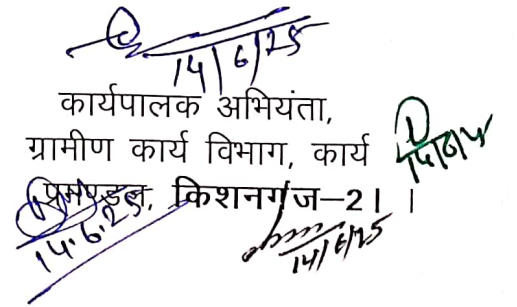 14/6/25
कार्यपालक अभियंता,
ग्रामीण कार्य विभाग, कार्य
14/6/25
प्रमण्डल, किशनगंज–2। ।
14.6.25
14/6/25